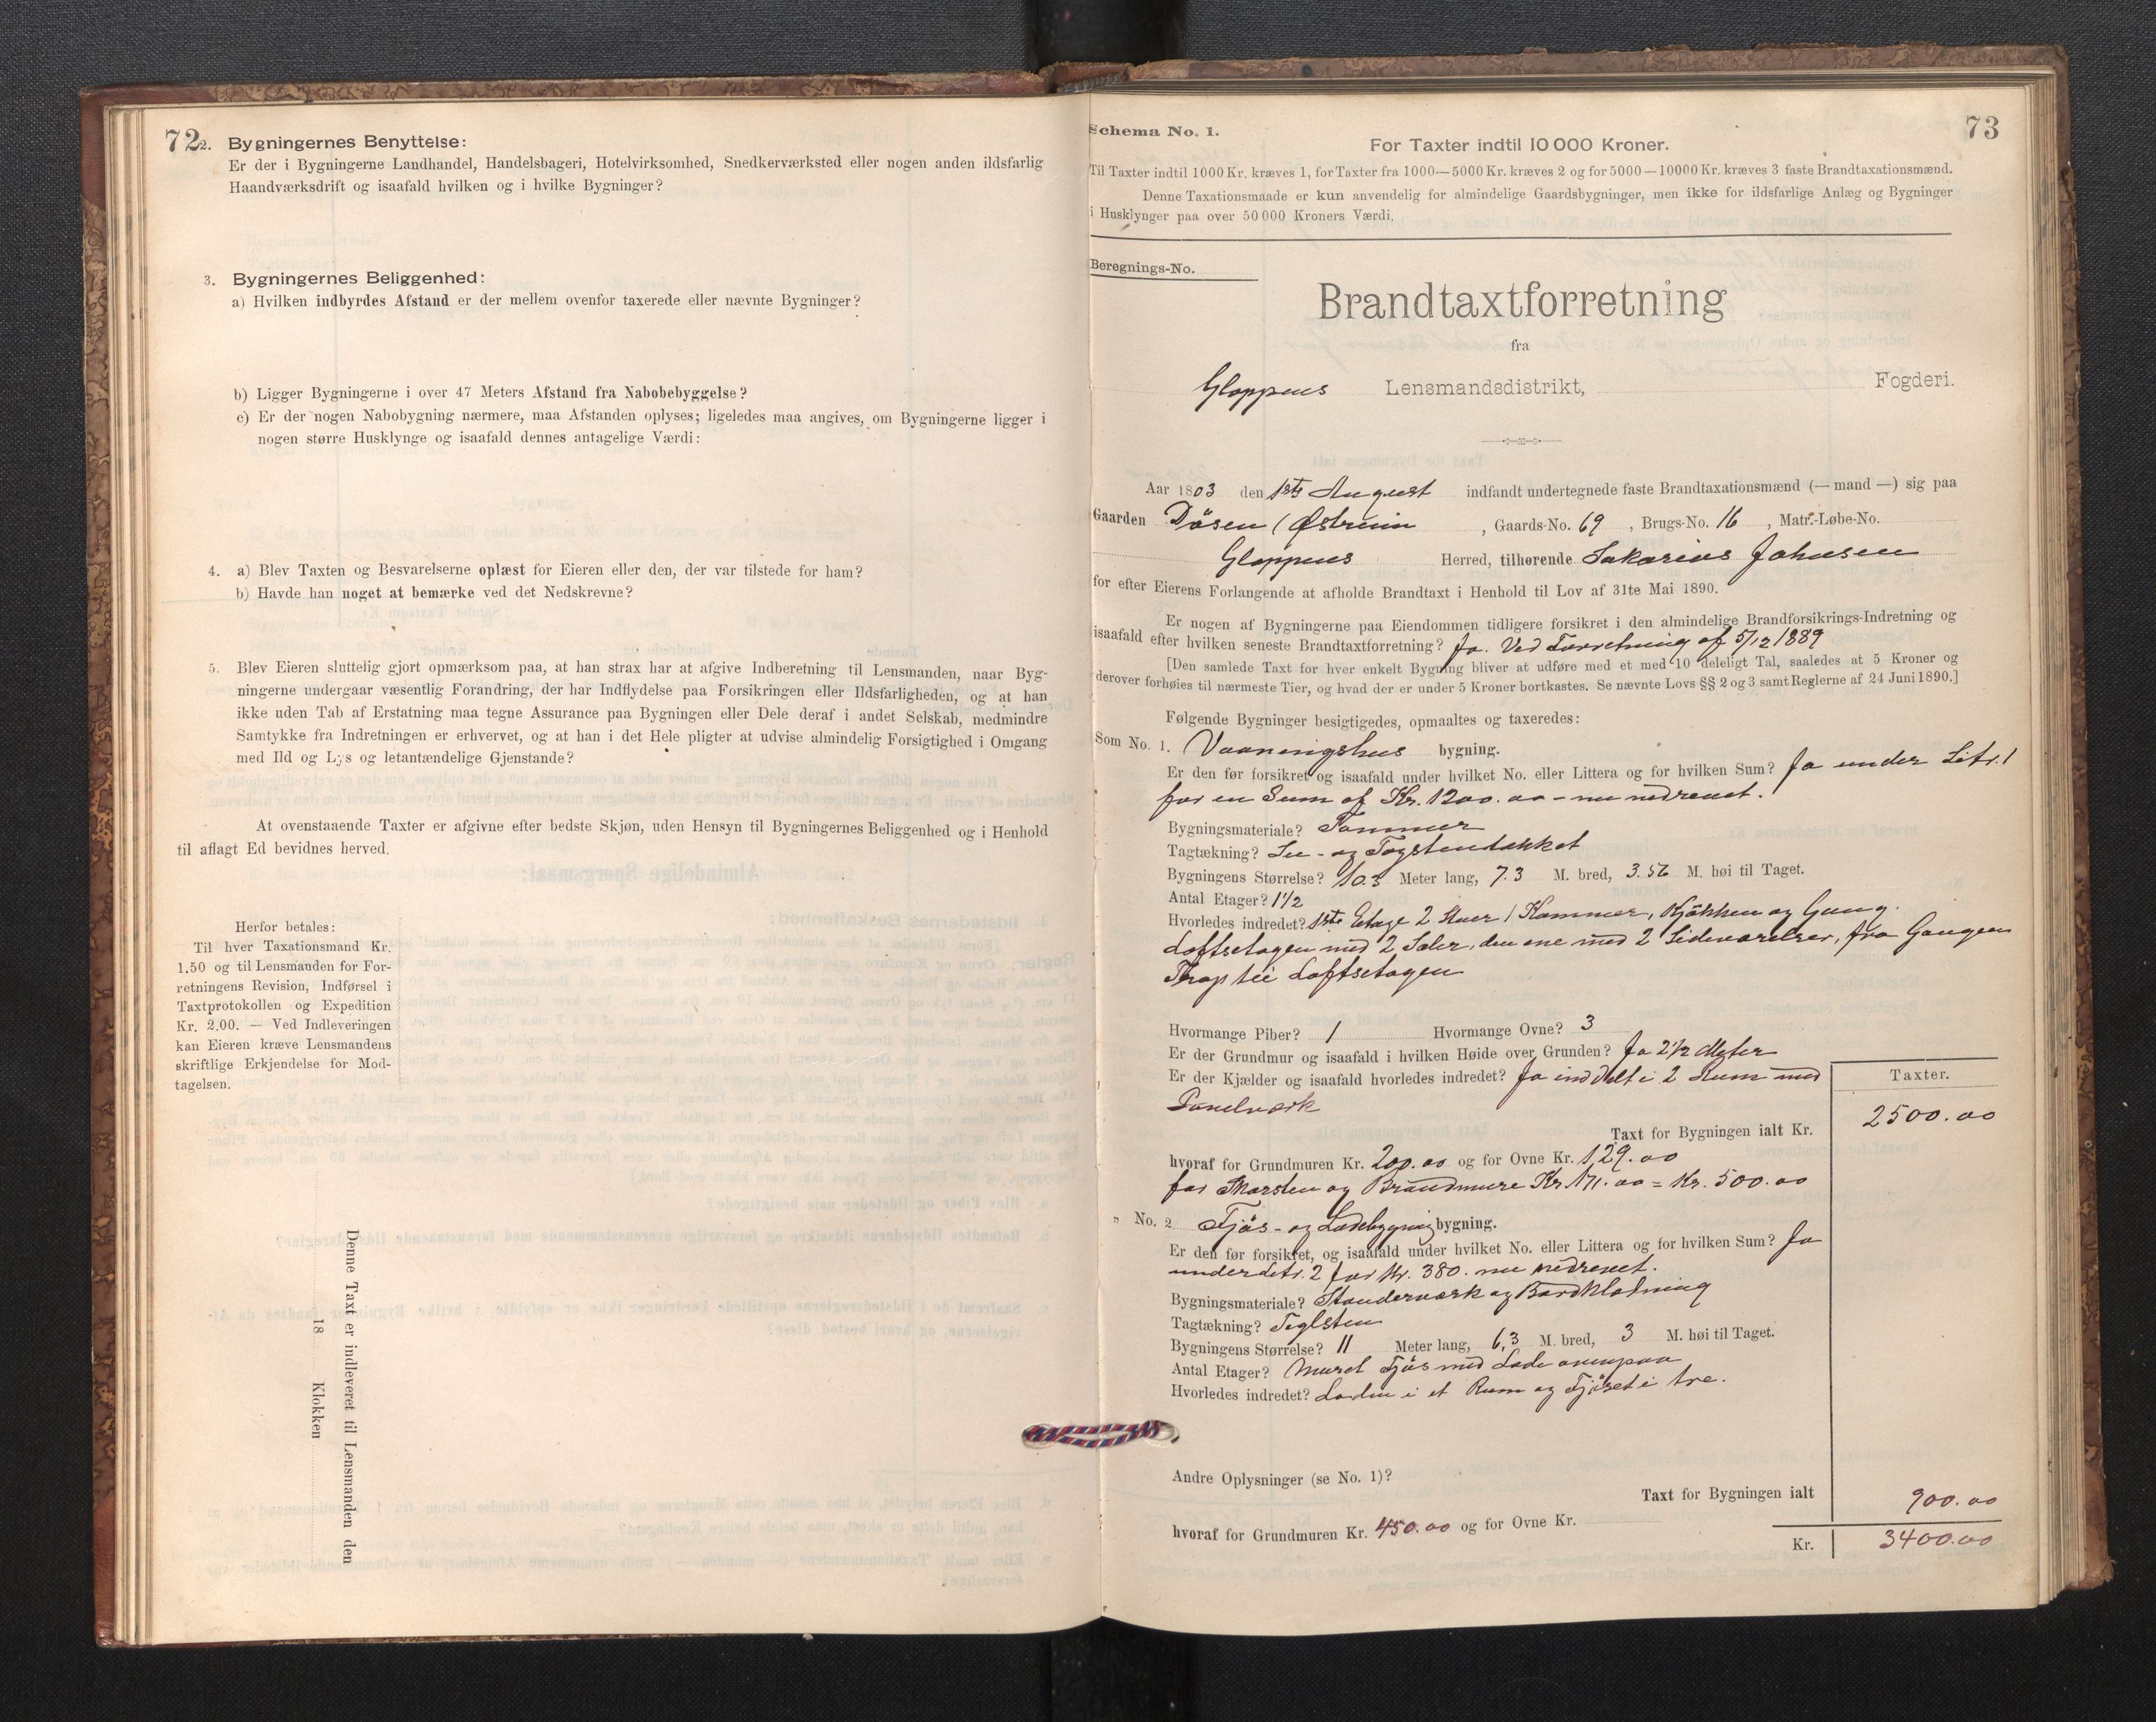 72
2. Bygningernes Benyttelse:
Er der i Bygningerne Landhandel, Handelsbageri, Hotelvirksomhed, Snedkerværksted eller nogen anden ildsfarlig
Haandværksdrift og isaafald hvilken og i hvilke Bygninger?
3. Bygningernes Beliggenhed:
a) Hvilken indbyrdes Afstand er der mellem ovenfor taxerede eller nævnte Bygninger?
b) Ligger Bygningerne i over 47 Meters Afstand fra Nabobebyggelse?
c) Er der nogen Nabobygning nærmere, maa Afstanden oplyses; ligeledes maa angives, om Bygningerne ligger i
nogen større Husklynge og isaafald dennes antagelige Værdi:
4. a) Blev Taxten og Besvarelserne oplæst for Eieren eller den, der var tilstede for ham?
b) Havde han noget at bemærke ved det Nedskrevne?
5. Blev Eieren sluttelig gjort opmærksom paa, at han strax har at afgive Indberetning til Lensmanden, naar Byg-
ningerne undergaar væsentlig Forandring, der har Indflydelse paa Forsikringen eller Ildsfarligheden, og at han
ikke uden Tab af Erstatning maa tegne Assurance paa Bygningen eller Dele deraf i andet Selskab, medmindre
Samtykke fra Indretningen er erhvervet, og at han i det Hele pligter at udvise almindelig Forsigtighed i Omgang
med Ild og Lys og letantændelige Gjenstande?
At ovenstaaende Taxter er afgivne efter bedste Skjøn, uden Hensyn til Bygningernes Beliggenhed og i Henhold
til aflagt Ed bevidnes herved.
Herfor betales:
Til hver Taxationsmand Kr.
1.50 og til Lensmanden for For-
retningens Revision, Indførsel i
Taxtprotokollen og Expedition
Kr. 2.00. — Ved Indleveringen
kan Eieren kræve Lensmandens
skriftlige Erkjendelse for Mod-
tagelsen.
Denne Taxt er indleveret til Lensmanden den
18 Klokken
73
Schema No. 1.
For Taxter indtil 10 000 Kroner.
Til Taxter indtil 1000 Kr. kræves 1, for Taxter fra 1000—5000 Kr. kræves 2 og for 5000—10000 Kr. kræves 3 faste Brandtaxationsmænd.
Denne Taxationsmaade er kun anvendelig for almindelige Gaardsbygninger, men ikke for ildsfarlige Anlæg og Bygninger
i Husklynger paa over 50 000 Kroners Værdi.
Beregnings-No.
Brandtaxtforretning
fra
Gloppens Lensmandsdistrikt, Fogderi.
Aar 1803 den 1ste August indfandt undertegnede faste Brandtaxationsmænd (— mand —) sig paa
Gaarden Døsen / Østreim, Gaards-No. 69, Brugs-No. 16, Matr.-Løbe-No.
Gloppens Herred, tilhørende Sakarias Johnsen
for efter Eierens Forlangende at afholde Brandtaxt i Henhold til Lov af 31te Mai 1890.
Er nogen af Bygningerne paa Eiendommen tidligere forsikret i den almindelige Brandforsikrings-Indretning og
isaafald efter hvilken seneste Brandtaxtforretning? Ja. Ved Forretning af 5/12 1889
[Den samlede Taxt for hver enkelt Bygning bliver at udføre med et med 10 deleligt Tal, saaledes at 5 Kroner og
derover forhøies til nærmeste Tier, og hvad der er under 5 Kroner bortkastes. Se nævnte Lovs §§ 2 og 3 samt Reglerne af 24 Juni 1890.]
Følgende Bygninger besigtigedes, opmaaltes og taxeredes:
Som No. 1. Vaaningshus bygning.
Er den før forsikret og isaafald under hvilket No. eller Littera og for hvilken Sum? Ja under Litr. 1
for en Sum af Kr. 1200.00 - nu nedrevet.
Bygningsmateriale? Tømmer
Tagtækning? Sue- og Tagstentækket
Bygningens Størrelse? 10.3 Meter lang, 7.3 M. bred, 3.56 M. høi til Taget.
Antal Etager? 1½
Hvorledes indredet? 1ste Etage 2 Stuer 1 Kammer, Kjøkken og Gang.
Loftsetagen med 2 Saler, den ene med 2 Sideværelser, fra Gangen
Trap til Loftsetagen
Hvormange Piber? 1 Hvormange Ovne? 3
Er der Grundmur og isaafald i hvilken Høide over Grunden? Ja 2½ Meter
Er der Kjælder og isaafald hvorledes indredet? Ja inddelt i 2 Rum med
Panelværk
Taxter.
Taxt for Bygningen ialt Kr. 2500.00
hvoraf for Grundmuren Kr. 200.00 og for Ovne Kr. 129.00
for Skorsten og Brandmure Kr. 171.00 = Kr. 500.00
" No. 2 Fjøs- og Ladebygning bygning.
Er den før forsikret, og isaafald under hvilket No. eller Littera og for hvilken Sum? Ja
under Litr. 2 for Kr. 380. nu nedrevet.
Bygningsmateriale? Standerværk og Bordklædning
Tagtækning? Teglsten
Bygningens Størrelse? 11 Meter lang, 6,3 M. bred, 3 M. høi til Taget.
Antal Etager? Muret Fjøs med Lade ovenpaa
Hvorledes indredet? Laden i et Rum og Fjøset i tre.
Andre Oplysninger (se No. 1)?
Taxt for Bygningen ialt 900.00
hvoraf for Grundmuren Kr. 450.00 og for Ovne Kr.
Kr. 3400.00